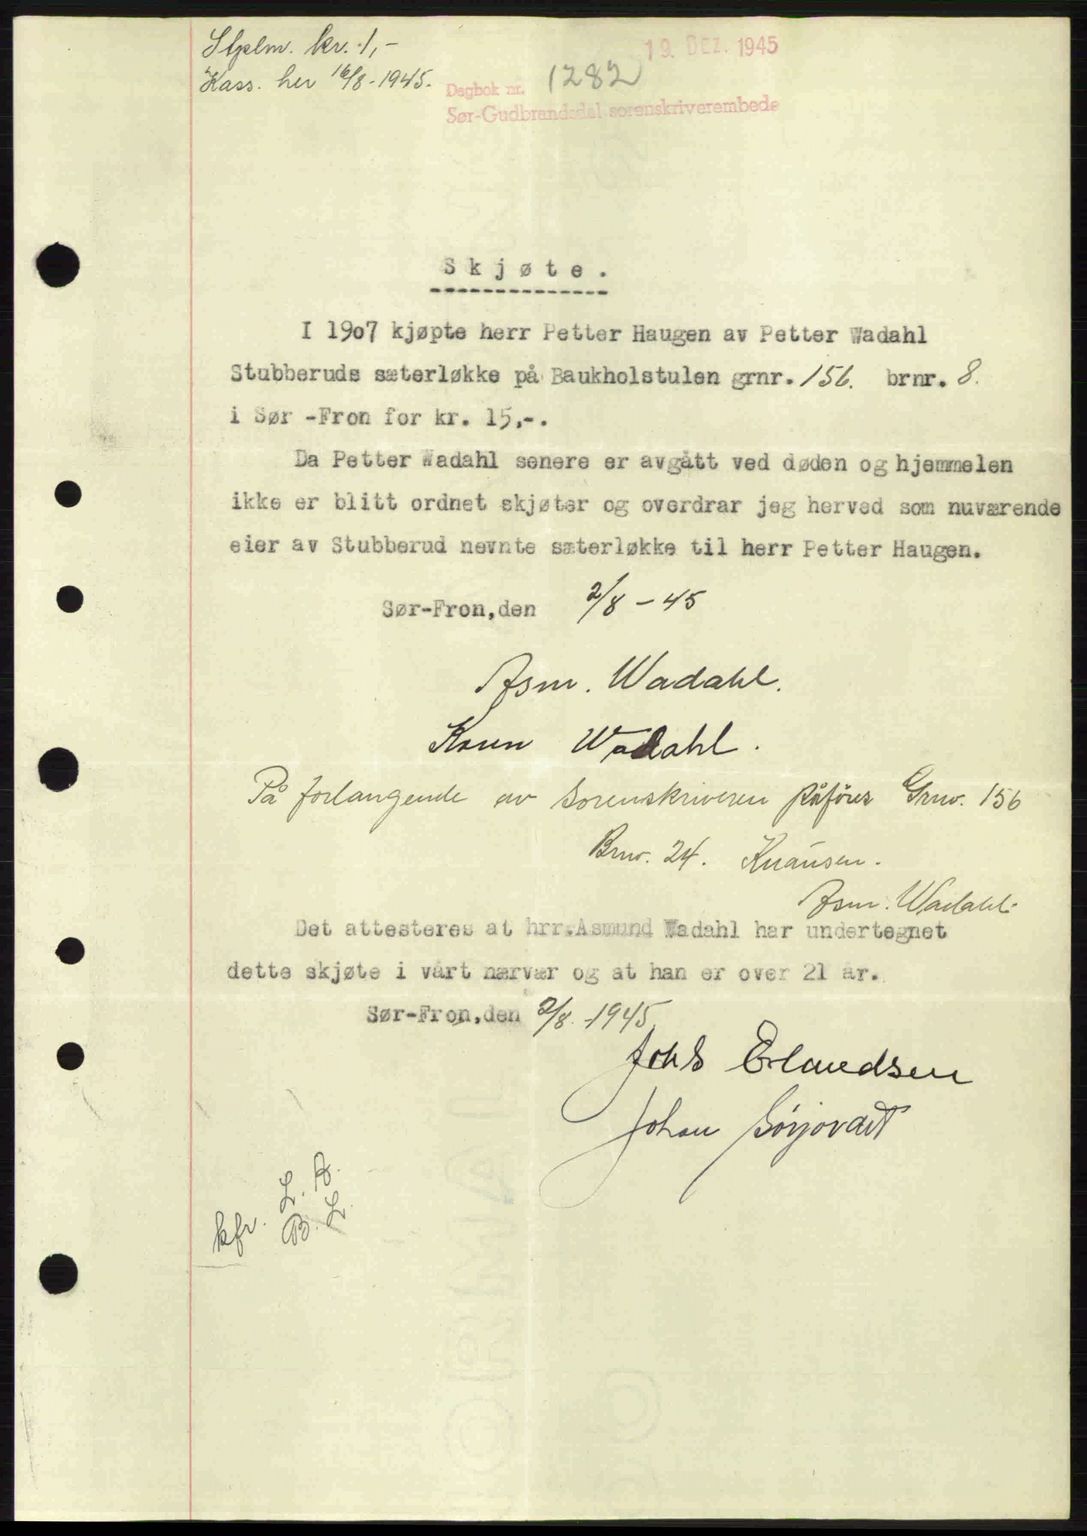 Stplm. kr. 1,-
Kass. her 16/8-1945.
19. DEZ. 1945
Dagbok nr. 1282
Sør-Gudbrandsdal sorenskriverembede
Skjøte.
I 1907 kjøpte herr Petter Haugen av Petter Wadahl
Stubberuds sæterløkke på Baukholstulen grnr. 156. brnr. 8.
i Sør -Fron for kr. 15,-.
Da Petter Wadahl senere er avgått ved døden og hjemmelen
ikke er blitt ordnet skjøter og overdrar jeg herved som nuværende
eier av Stubberud nevnte sæterløkke til herr Petter Haugen.
Sør-Fron,den 2/8 - 45
Asm. Wadahl.
Wadahl.
På forlangende av Sorenskriveren påføres Grnr. 156
Brnr. 24.
Asm. Wadahl.
Det attesteres at hrr.Asmund Wadahl har undertegnet
dette skjøte i vårt nærvær og at han er over 21 år.
Sør-Fron,den 2/8.-1945
Johs Erlandsen
Johan
L. A.
kfr. B. L.